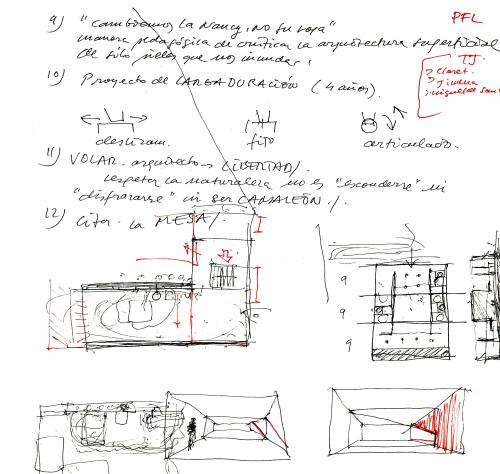 9) "Cambiemos la Nancy, no su ropa"
PFL
manera pedagógica de criticar la arquitectura superficial
de sólo pieles que nos inundan!
TJ
> Claret.
> Jimena
> Miguel de San
10) Proyecto de LARGA DURACIÓN (4 años).
deslizam. fijo articulado.
11) VOLAR. arquitecto → LIBERTAD/.
respetar la naturaleza no es "esconderse" ni
"disfrazarse" ni ser CAMALEÓN./
12) Cita. la MESA/.
9
9
9